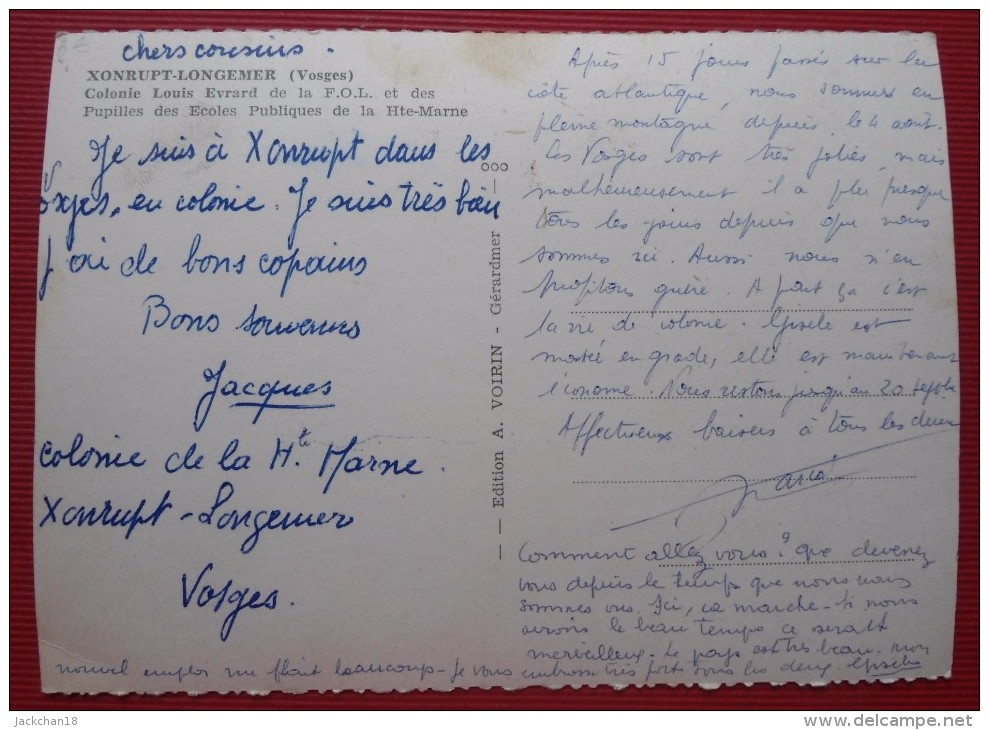 chers cousins.
XONRUPT-LONGEMER (Vosges)
Colonie Louis Evrard de la F.O.L. et des
Pupilles des Ecoles Publiques de la Hte-Marne
Je suis à Xonrupt dans les
Vosges, en colonie. Je suis très bien
j'ai de bons copains
Bons souvenirs
Jacques
Colonie de la Hte Marne.
Xonrupt-Longemer
Vosges.
— Edition A. VOIRIN - Gérardmer —
Après 15 jours passés sur la
côte atlantique, nous sommes en
pleine montagne depuis le 4 août.
Les Vosges sont très jolies, mais
malheureusement il a plu presque
tous les jours depuis que nous
sommes ici. Aussi nous n'en
profitons guère. A part ça c'est
la vie de colonie. Gisèle est
montée en grade, elle est maintenant
l'économe. Nous restons jusqu'au 20 septbre
Affectueux baisers à tous les deux
Comment allez vous? que devenez
vous depuis le temps que nous nous
sommes vus. Ici, ça marche - si nous
avions le beau temps ce serait
merveilleux. Le pays est très beau. mon
nouvel emploi me plaît beaucoup - Je vous embrasse très fort tous les deux. Gisèle
jackchan18
www.delcampe.net